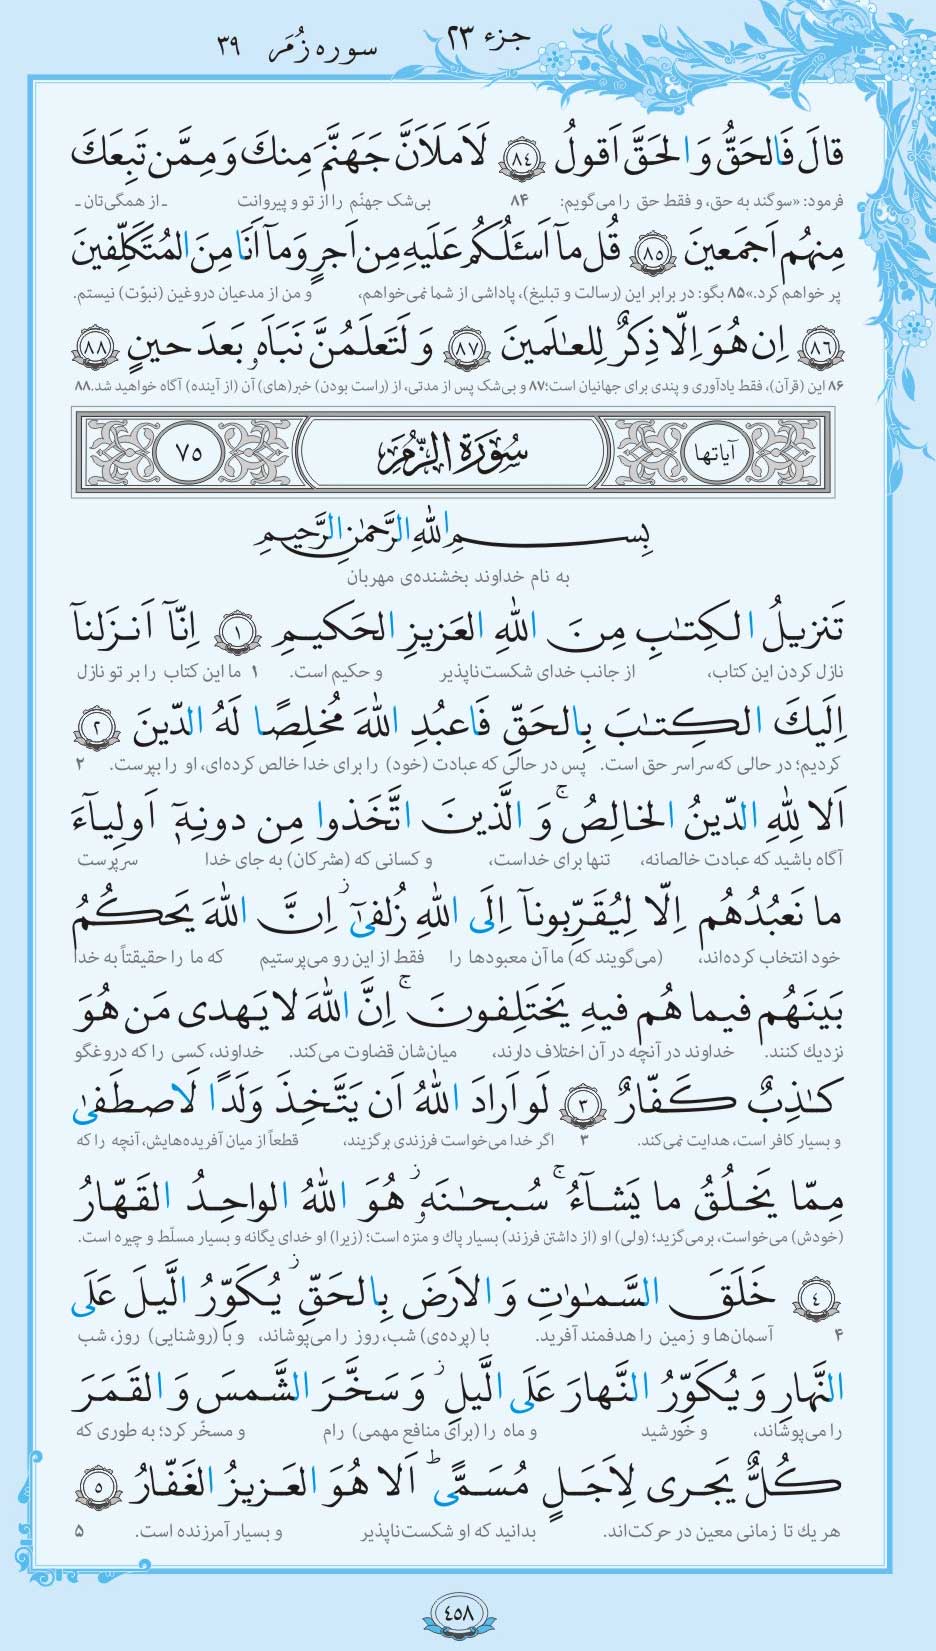 جزء ۲۳ سوره زُمَر ۳۹
قالَ فَالحَقُّ وَ الحَقَّ اَقولُ ﴿٨٤﴾ لَاَملَاَنَّ جَهَنَّمَ مِنكَ وَ مِمَّن تَبِعَكَ
فرمود: «سوگند به حق، و فقط حق را می‌گویم: ۸۴ بی‌شک جهنّم را از تو و پیروانت ـ از همگی‌تان ـ
مِنهُم اَجمَعينَ ﴿٨٥﴾ قُل ماۤ اَسـَٔلُكُم عَلَيهِ مِن اَجرٍ وَ ماۤ اَنَا مِنَ المُتَكَلِّفينَ
پر خواهم کرد.» ۸۵ بگو: در برابر این (رسالت و تبلیغ)، پاداشی از شما نمی‌خواهم، و من از مدعیان دروغین (نبوّت) نیستم.
﴿٨٦﴾ اِن هُوَ اِلّا ذِكرٌ لِلعـٰلَمينَ ﴿٨٧﴾ وَ لَتَعلَمُنَّ نَبَاَهو بَعدَ حينٍ ﴿٨٨﴾
۸۶ این (قرآن)، فقط یادآوری و پندی برای جهانیان است؛ ۸۷ و بی‌شک پس از مدتی، از (راست بودن) خبر(های) آن (از آینده) آگاه خواهید شد. ۸۸
آیاتها سُورَةُ الزُّمَر ٧٥
بِسمِ اللّٰهِ الرَّحمٰنِ الرَّحيمِ
به نام خداوند بخشنده‌ی مهربان
تَنزيلُ الكِتـٰبِ مِنَ اللّٰهِ العَزيزِ الحَكيمِ ﴿١﴾ اِنّاۤ اَنزَلناۤ
نازل کردن این کتاب، از جانب خدای شکست‌ناپذیر و حکیم است. ۱ ما این کتاب را بر تو نازل
اِلَيكَ الكِتـٰبَ بِالحَقِّ فَاعبُدِ اللّٰهَ مُخلِصًا لَهُ الدّينَ ﴿٢﴾
کردیم؛ در حالی که سراسر حق است. پس در حالی که عبادت (خود) را برای خدا خالص کرده‌ای، او را بپرست. ۲
اَلا لِلّٰهِ الدّينُ الخالِصُ ۚ وَ الَّذينَ اتَّخَذوا مِن دونِهۤ اَولِياۤءَ
آگاه باشید که عبادت خالصانه، تنها برای خداست، و کسانی که (مشرکان) به جای خدا سرپرست
ما نَعبُدُهُم اِلّا لِيُقَرِّبوناۤ اِلَى اللّٰهِ زُلفىٰۤ ز اِنَّ اللّٰهَ يَحكُمُ
خود انتخاب کرده‌اند، (می‌گویند که) ما آن معبودها را فقط از این رو می‌پرستیم که ما را حقیقتاً به خدا
بَينَهُم فيما هُم فيهِ يَختَلِفونَ ۚ اِنَّ اللّٰهَ لا يَهدى مَن هُوَ
نزدیك کنند. خداوند در آنچه در آن اختلاف دارند، میان‌شان قضاوت می‌کند. خداوند، کسی را که دروغگو
كـٰذِبٌ كَفّارٌ ﴿٣﴾ لَو اَرادَ اللّٰهُ اَن يَتَّخِذَ وَلَدًا لَاصطَفىٰ
و بسیار کافر است، هدایت نمی‌کند. ۳ اگر خدا می‌خواست فرزندی برگزیند، قطعاً از میان آفریده‌هایش، آنچه را که
مِمّا يَخلُقُ ما يَشاۤءُ ۚ سُبحـٰنَهو ز هُوَ اللّٰهُ الواحِدُ القَهّارُ
(خودش) می‌خواست، برمی‌گزید؛ (ولی) او (از داشتن فرزند) بسیار پاك و منزه است؛ (زیرا) او خدای یگانه و بسیار مسلّط و چیره است.
﴿٤﴾ خَلَقَ السَّمـٰوٰتِ وَ الاَرضَ بِالحَقِّ ز يُكَوِّرُ الَّيلَ عَلَى
۴ آسمان‌ها و زمین را هدفمند آفرید. با (پرده‌ی) شب، روز را می‌پوشاند، و با (روشنایی) روز، شب
النَّهارِ وَ يُكَوِّرُ النَّهارَ عَلَى الَّيلِ ز وَ سَخَّرَ الشَّمسَ وَ القَمَرَ
را می‌پوشاند، و خورشید و ماه را (برای منافع مهمی) رام و مسخّر کرد؛ به طوری که
كُلٌّ يَجرى لِاَجَلٍ مُسَمًّى ؕ اَلا هُوَ العَزيزُ الغَفّارُ ﴿٥﴾
هر یك تا زمانی معین در حرکت‌اند. بدانید که او شکست‌ناپذیر و بسیار آمرزنده است. ۵
٤٥٨